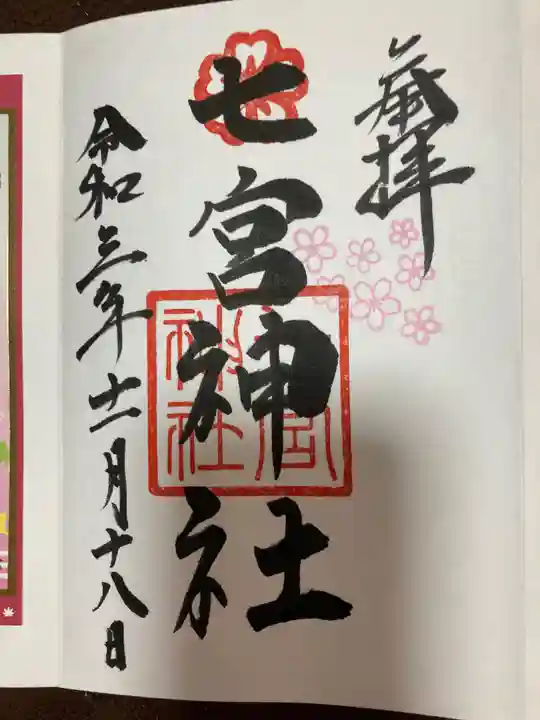 奉拝
七宮神社
令和三年十一月十八日
神社
宮